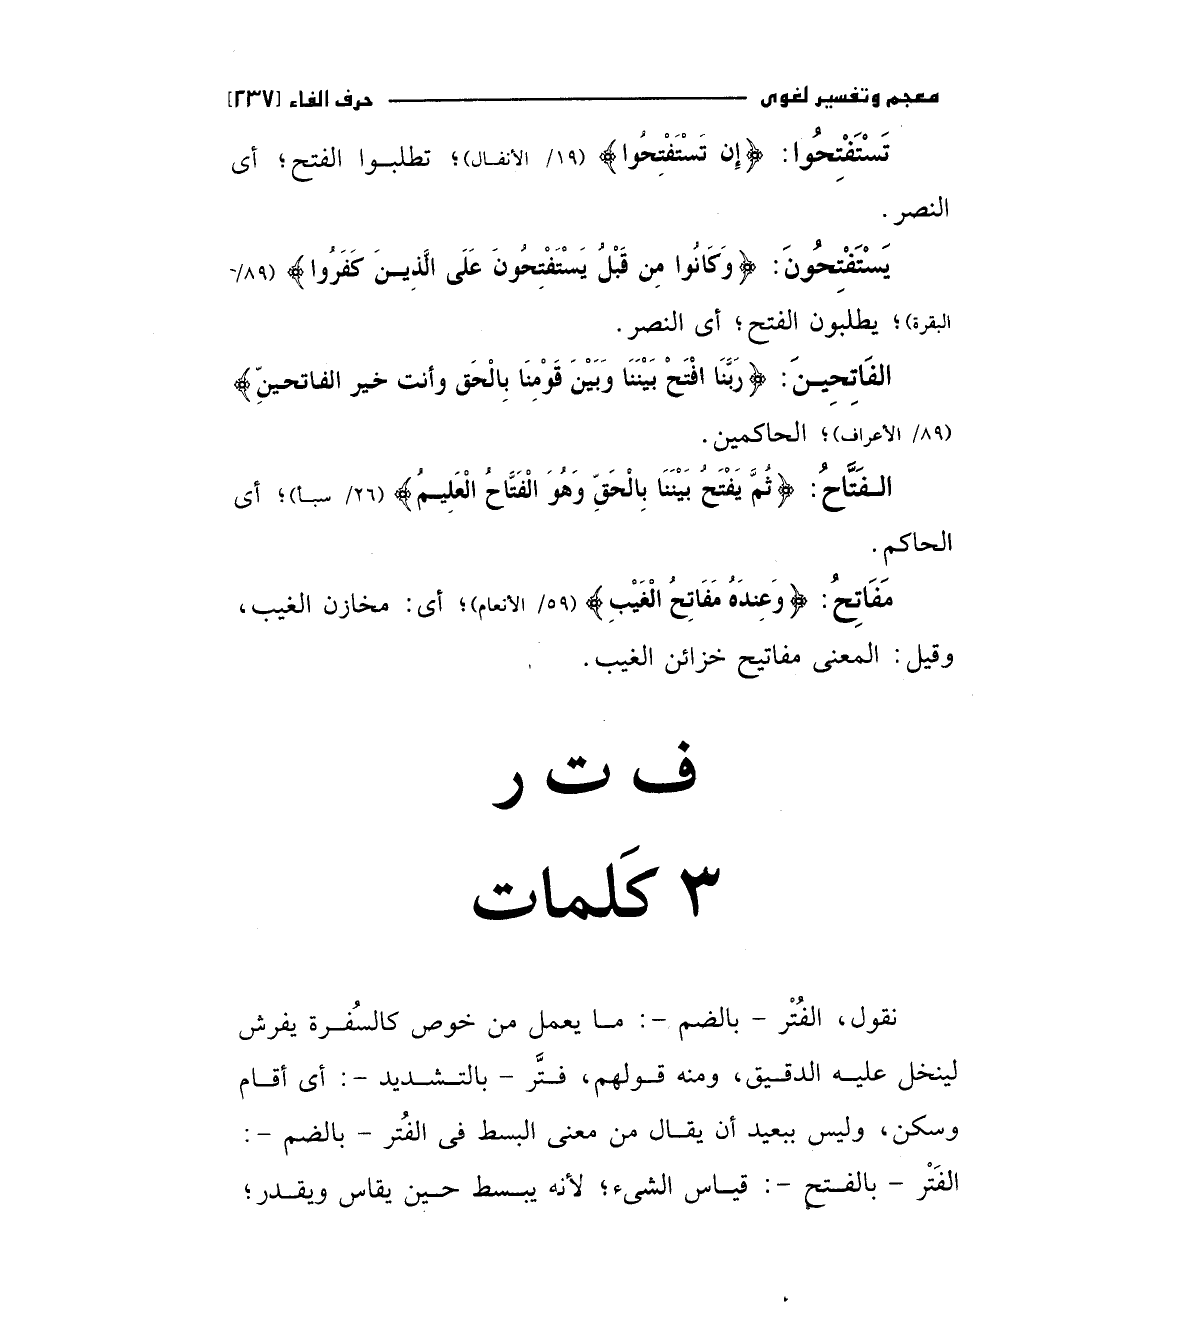 معجم وتفسير لغوى حرف الفاء [٢٣٧]
تَسْتَفْتِحُوا: ﴿إِن تَسْتَفْتِحُوا﴾ (١٩/ الأنفـال)؛ تطلبـوا الفتح؛ أى
النصر.
يَسْتَفْتِحُونَ: ﴿وَكَانُوا مِن قَبْلُ يَسْتَفْتِحُونَ عَلَى الَّذِيـنَ كَفَرُوا﴾ (٨٩/-
البقرة)؛ يطلبون الفتح؛ أى النصر.
الفَاتِحِيـنَ: ﴿رَبَّنَا افْتَحْ بَيْنَنَا وَبَيْنَ قَوْمِنَا بِالْحَق وأنت خير الفاتحينِّ﴾
(٨٩/ الأعراف)؛ الحاكمين.
الـفَتَّاحُ: ﴿ثُمَّ يَفْتَحُ بَيْنَنَا بِالْحَقِّ وَهُوَ الْفَتَّاحُ الْعَلِيـمُ﴾ (٢٦/ سبـأ)؛ أى
الحاكم.
مَفَاتِحُ: ﴿وَعِندَهُ مَفَاتِحُ الْغَيْبِ﴾ (٥٩/ الأنعام)؛ أى: مخازن الغيب،
وقيل: المعنى مفاتيح خزائن الغيب.
ف ت ر
٣ كَلمات
نقول، الفُتْر - بالضم -: مـا يعمل من خوص كالسُفـرة يفرش
لينخل عليـه الدقيـق، ومنه قـولهم، فـتَّر - بالتـشـديد -: أى أقـام
وسكن، وليس ببعيد أن يقـال من معنى البسط فى الفُتر - بالضم -:
الفَتْر - بالفـتح -: قيـاس الشىء؛ لأنه يبـسط حـين يقاس ويقـدر؛